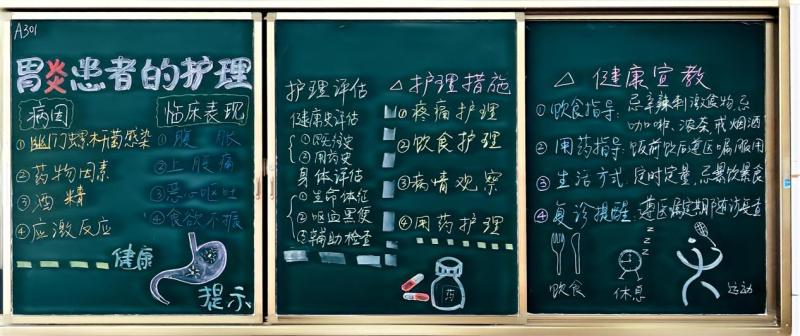 A301
胃炎患者的护理
病因
①幽门螺杆菌感染
②药物因素
③酒精
④应激反应
临床表现
①腹胀
②上腹痛
③恶心呕吐
④食欲不振
健康
提示
护理评估
健康史评估
①既病史
②用药史
身体评估
①生命体征
②呕血黑便
③辅助检查
△护理措施
①疼痛护理
②饮食护理
③病情观察
④用药护理
药
△健康宣教
①饮食指导:忌辛辣刺激食物,忌
咖啡、浓茶戒烟酒
②用药指导:饭前饮后遵医嘱服用
③生活方式:定时定量,忌暴饮暴食
④复诊提醒:遵医嘱定期随访复查
饮食
z z z
休息
运动